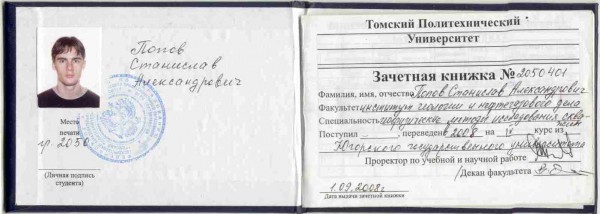 Попов
Станислав
Александрович
Место
печати
гр. 2050
(Личная подпись
студента)
Томский Политехнический
Университет
Зачетная книжка № 2050401
Фамилия, имя, отчество Попов Станислав Александрович
Факультет институт геологии и нефтегазового дела
Специальность геофизические методы исследования скважин
Поступил , переведен в 2008 на IV курс из
Югорского государственного университета
Проректор по учебной и научной работе
Декан факультета
1.09.2008г.
Дата выдачи зачетной книжки